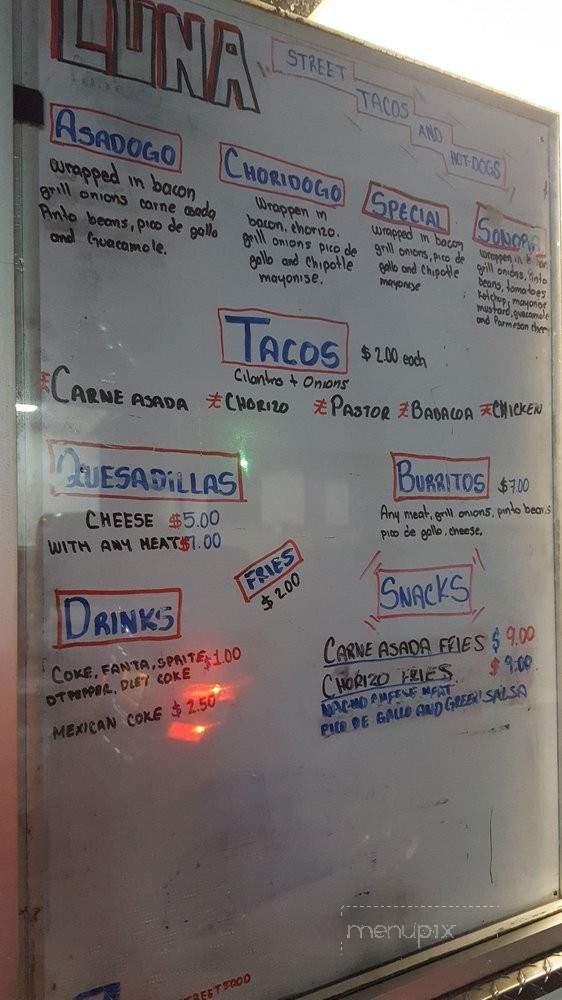 LUNA
STREET
TACOS
AND
HOT-DOGS
ASADOGO
wrapped in bacon
grill onions carne asada
Pinto beans, pico de gallo
and Guacamole.
CHORIDOGO
Wrappen in
bacon, chorizo.
grill onions pico de
gallo and Chipotle
mayonise.
SPECIAL
wrapped in bacon
grill onions, pico de
gallo and Chipotle
mayonise
wrappen in
grill onions, Pinto
beans, tomatoes
ketchup, mayonise
mustard, guacamole
and Parmesan chees
TACOS $2.00 each
Cilantro + Onions
CARNE ASADA CHORIZO PASTOR BABACOA CHICKEN
QUESADILLAS
CHEESE $5.00
WITH ANY MEAT $1.00
BURRITOS $7.00
Any meat, grill onions, pinto beans
pico de gallo, cheese.
FRIES
$2.00
DRINKS
COKE, FANTA, SPRITE $1.00
DTPEPPER, DIET COKE
MEXICAN COKE $2.50
SNACKS
CARNE ASADA FRIES $9.00
CHORIZO FRIES $9.00
NACHO CHEESE MEAT
PICO DE GALLO AND GREEN SALSA
menupix